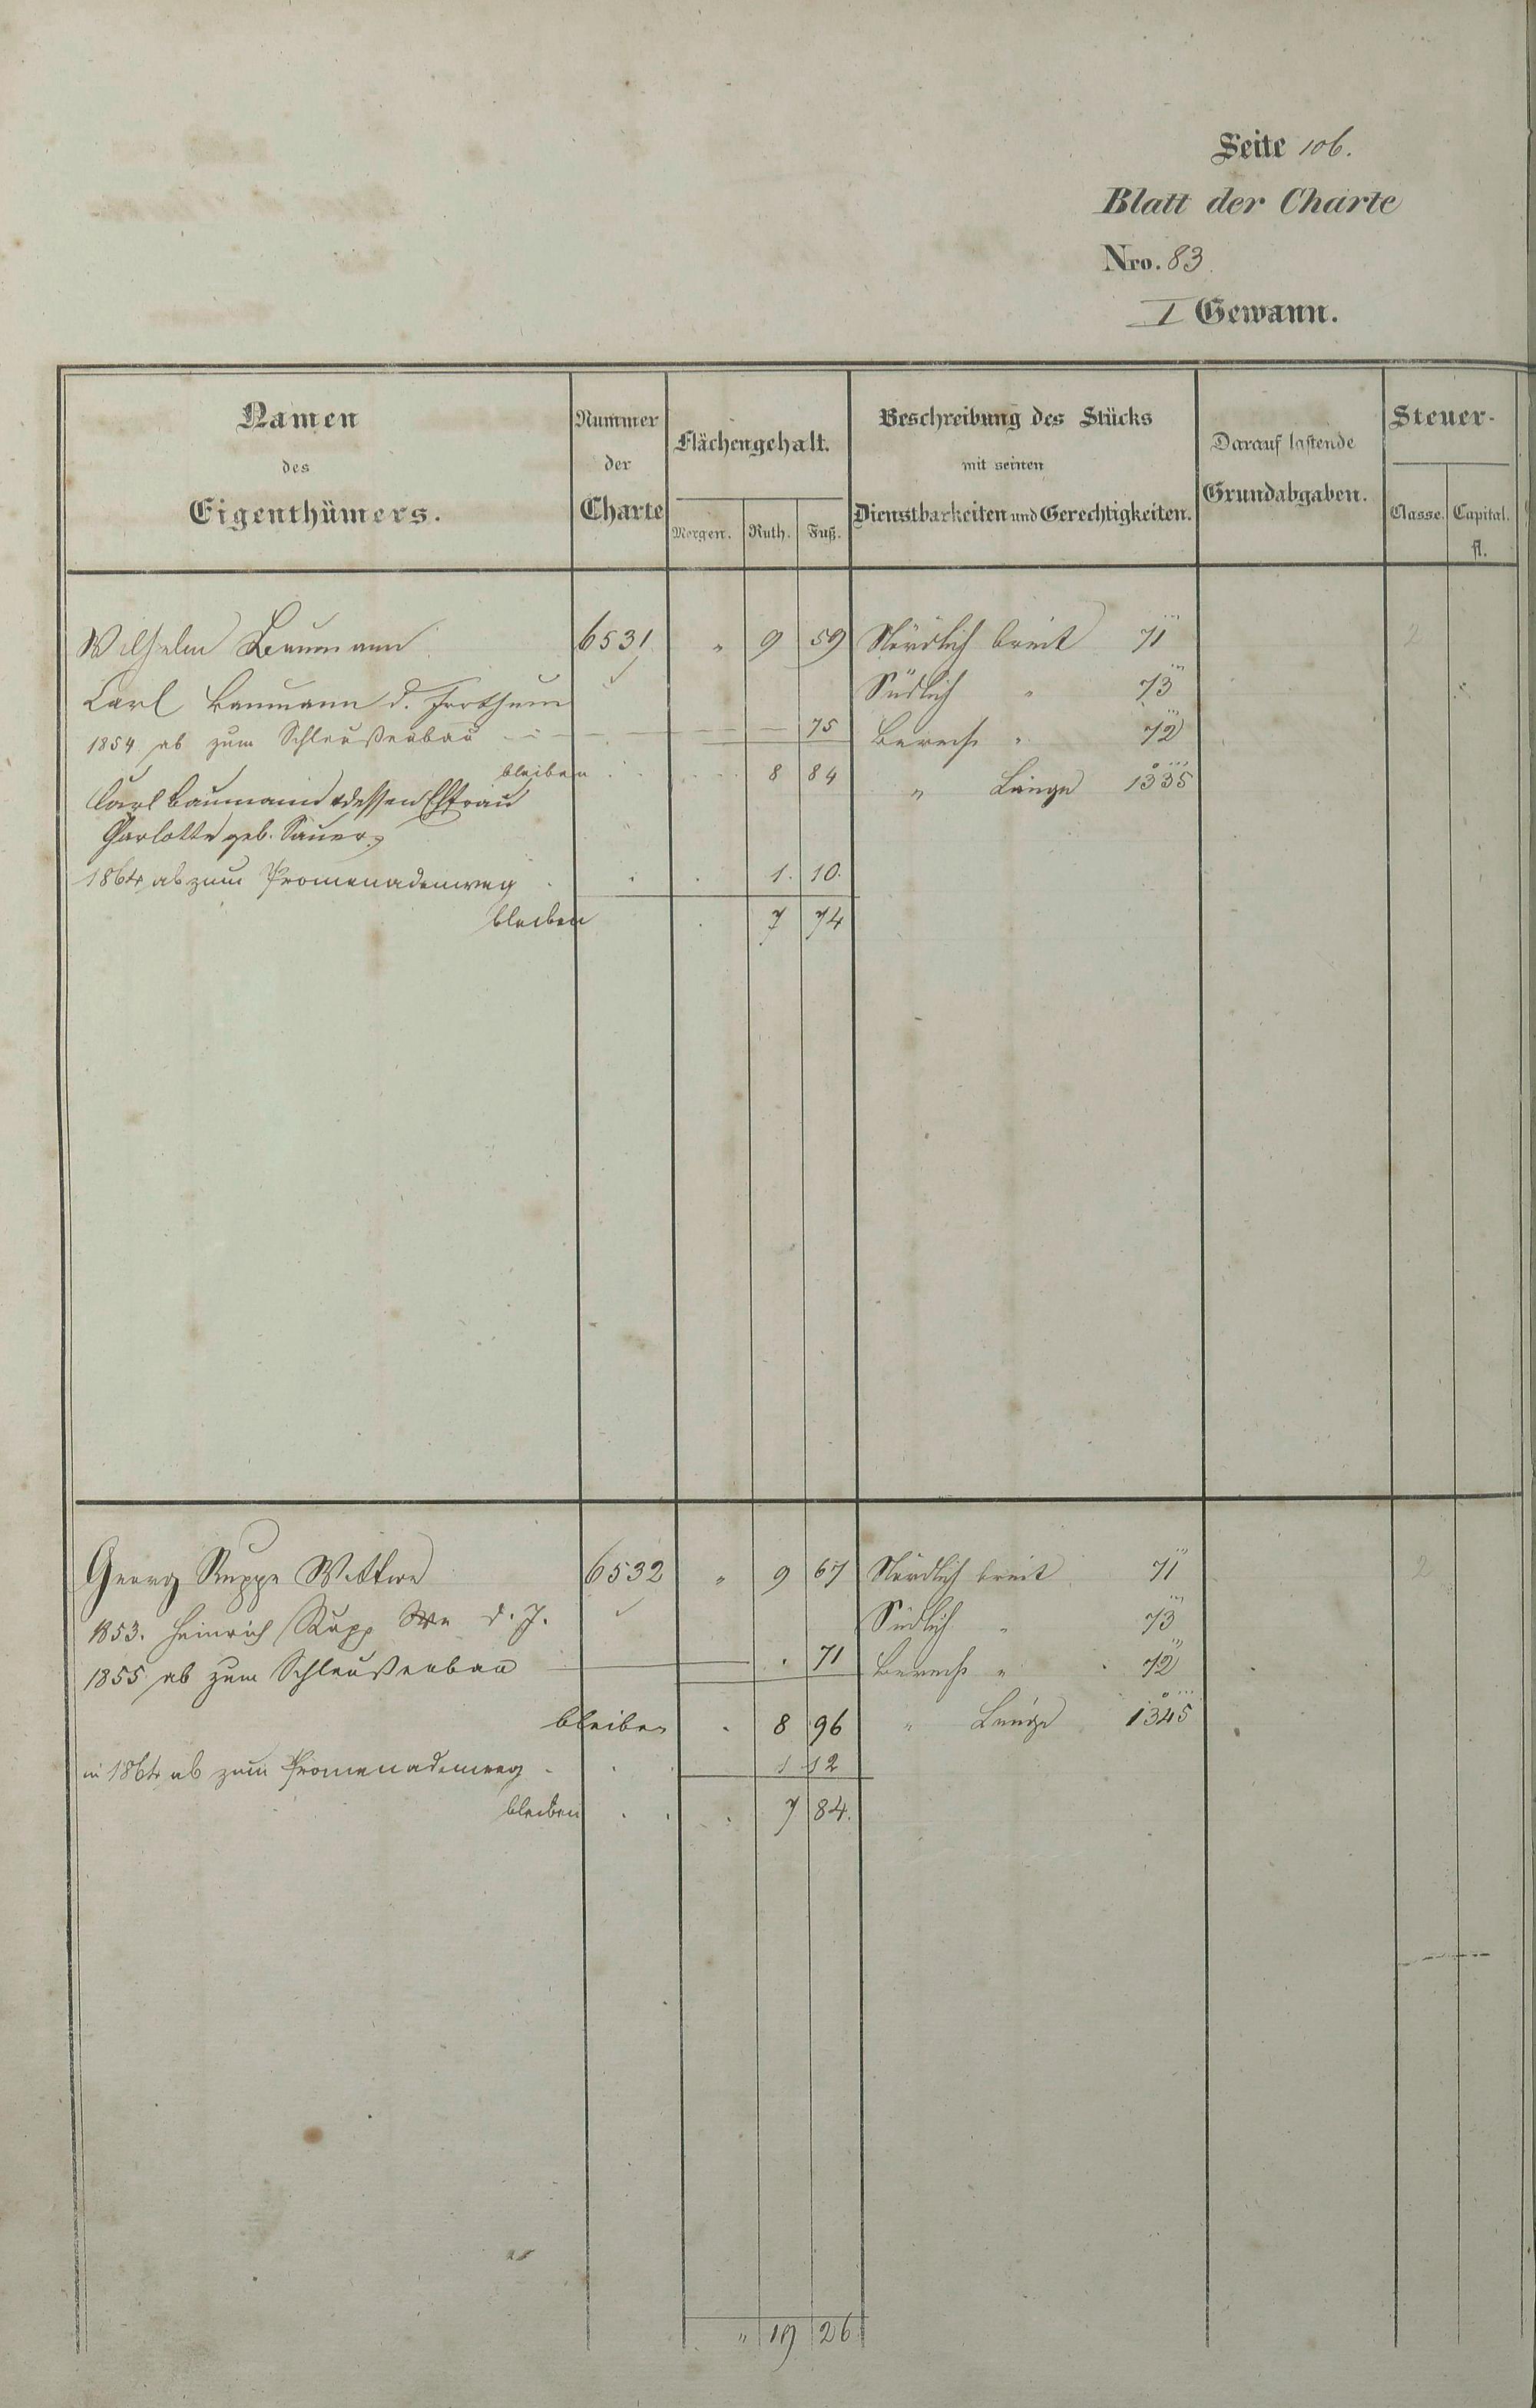 Seite 106.
Blatt der Charte
Nro. 83.
I Gewann.
Namen
des
Eigenthümers.
Nummer
der
Charte
Flächengehalt.
Morgen. Ruth. Fuß.
Beschreibung des Stücks
mit seinen
Dienstbarkeiten und Gerechtigkeiten.
Darauf lastende
Grundabgaben.
Steuer-
Classe. Capital.
fl.
Wilhelm Baumann 6531 " 9 59 Nördlich breit 71''' 2
Carl Baumann d. Südlich " 73'''
1854 ab zum Schleußenbau — 75 Berech " 72'''
bleiben 8 84 " Länge 1335
Carl Baumann & dessen Ehfrau
Charlotte geb. Sauer
1864 ab zum Promenadenweg 1. 10.
bleiben 7 74
Georg Ruppe Wittwe 6532 " 9 67 Nördlich breit 71''' 2
1853. Heinrich Rupp We d. J. Südlich " 73'''
1855 ab zum Schleußenbau — 71 Berech " 72'''
bleiben 8 96 " Länge 1345
in 1864 ab zum Promenadenweg 1 12
bleiben 7 84.
" 19 26